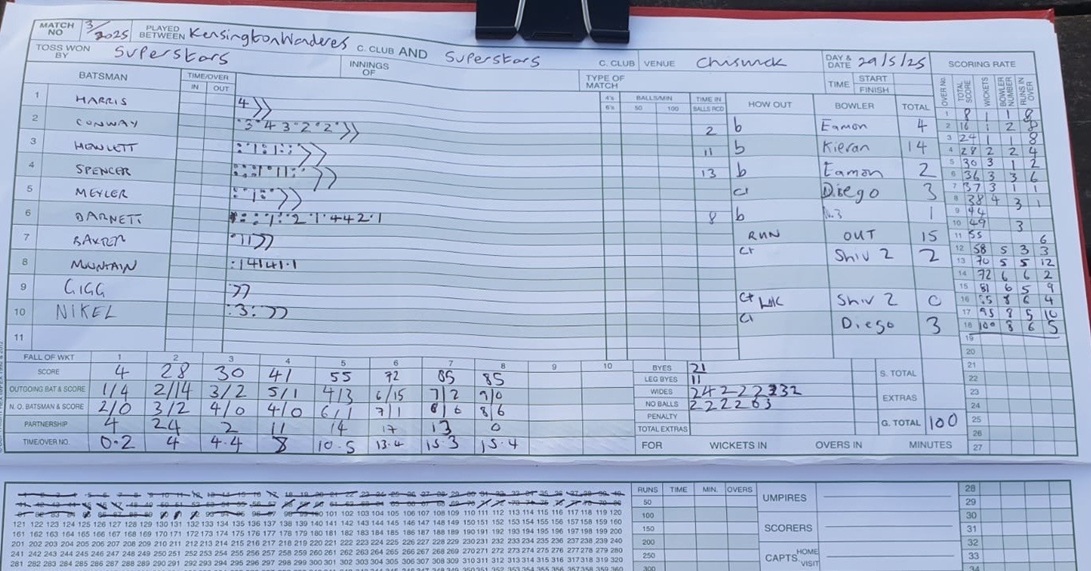 MATCH NO 3/2025 PLAYED BETWEEN Kensington Wanderes C. CLUB AND Superstars C. CLUB VENUE Chiswick DAY & DATE 29/5/25 SCORING RATE
TOSS WON BY Superstars INNINGS OF TYPE OF MATCH TIME START FINISH
BATSMAN TIME/OVER IN OUT 4's 6's BALLS/MIN 50 100 TIME IN BALLS RCD HOW OUT BOWLER TOTAL OVER No. TOTAL SCORE WICKETS BOWLER NUMBER RUNS IN OVER
1 HARRIS 4 2 b Eamon 4
2 CONWAY 11 b Kieran 14
3 HOWLETT 13 b Eamon 2
4 SPENCER ct Diego 3
5 MEYLER 8 b 1
6 BARNETT RUN OUT 15
7 BAXTER ct Shiv 2 2
8 MOUNTAIN :14141·1
9 GIGG ct Shiv 2 0
10 NIKEL ct Diego 3
11
1 8 1 1 8
2 16 1 2 8
3 24 1 1 8
4 28 2 2 4
5 30 3 1 2
6 36 3 3 6
7 37 3 1 1
8 38 4 3 1
9 44
10 49 3
11 55 6
12 58 5 3 3
13 70 5 5 12
14 72 6 6 2
15 81 6 5 9
16 85 8 6 4
17 95 8 5 10
18 100 8 6 5
19
20
21
22
23
24
25
26
27
FALL OF WKT 1 2 3 4 5 6 7 8 9 10
SCORE 4 28 30 41 55 72 85 85
OUTGOING BAT & SCORE 1/4 2/14 3/2 5/1 4/3 6/15 7/2 9/0
N. O. BATSMAN & SCORE 2/0 3/2 4/0 4/0 6/1 7/1 8/6 8/6
PARTNERSHIP 4 24 2 11 14 17 13 0
TIME/OVER NO. 0.2 4 4.4 8 10.5 13.4 15.3 15.4
BYES 21 S. TOTAL
LEG BYES 11
WIDES 242222332 EXTRAS
NO BALLS 222263
PENALTY
TOTAL EXTRAS G. TOTAL 100
FOR WICKETS IN OVERS IN MINUTES
RUNS TIME MIN. OVERS
50
100
150
200
250
300
UMPIRES
SCORERS
CAPTS HOME VISIT
28
29
30
31
32
33
34
121 122 123 124 125 126 127 128 129 130 131 132 133 134 135 136 137 138 139 140 141 142 143 144 145 146 147 148 149 150 151 152 153 154 155 156 157 158 159 160
161 162 163 164 165 166 167 168 169 170 171 172 173 174 175 176 177 178 179 180 181 182 183 184 185 186 187 188 189 190 191 192 193 194 195 196 197 198 199 200
201 202 203 204 205 206 207 208 209 210 211 212 213 214 215 216 217 218 219 220 221 222 223 224 225 226 227 228 229 230 231 232 233 234 235 236 237 238 239 240
241 242 243 244 245 246 247 248 249 250 251 252 253 254 255 256 257 258 259 260 261 262 263 264 265 266 267 268 269 270 271 272 273 274 275 276 277 278 279 280
281 282 283 284 285 286 287 288 289 290 291 292 293 294 295 296 297 298 299 300 301 302 303 304 305 306 307 308 309 310 311 312 313 314 315 316 317 318 319 320